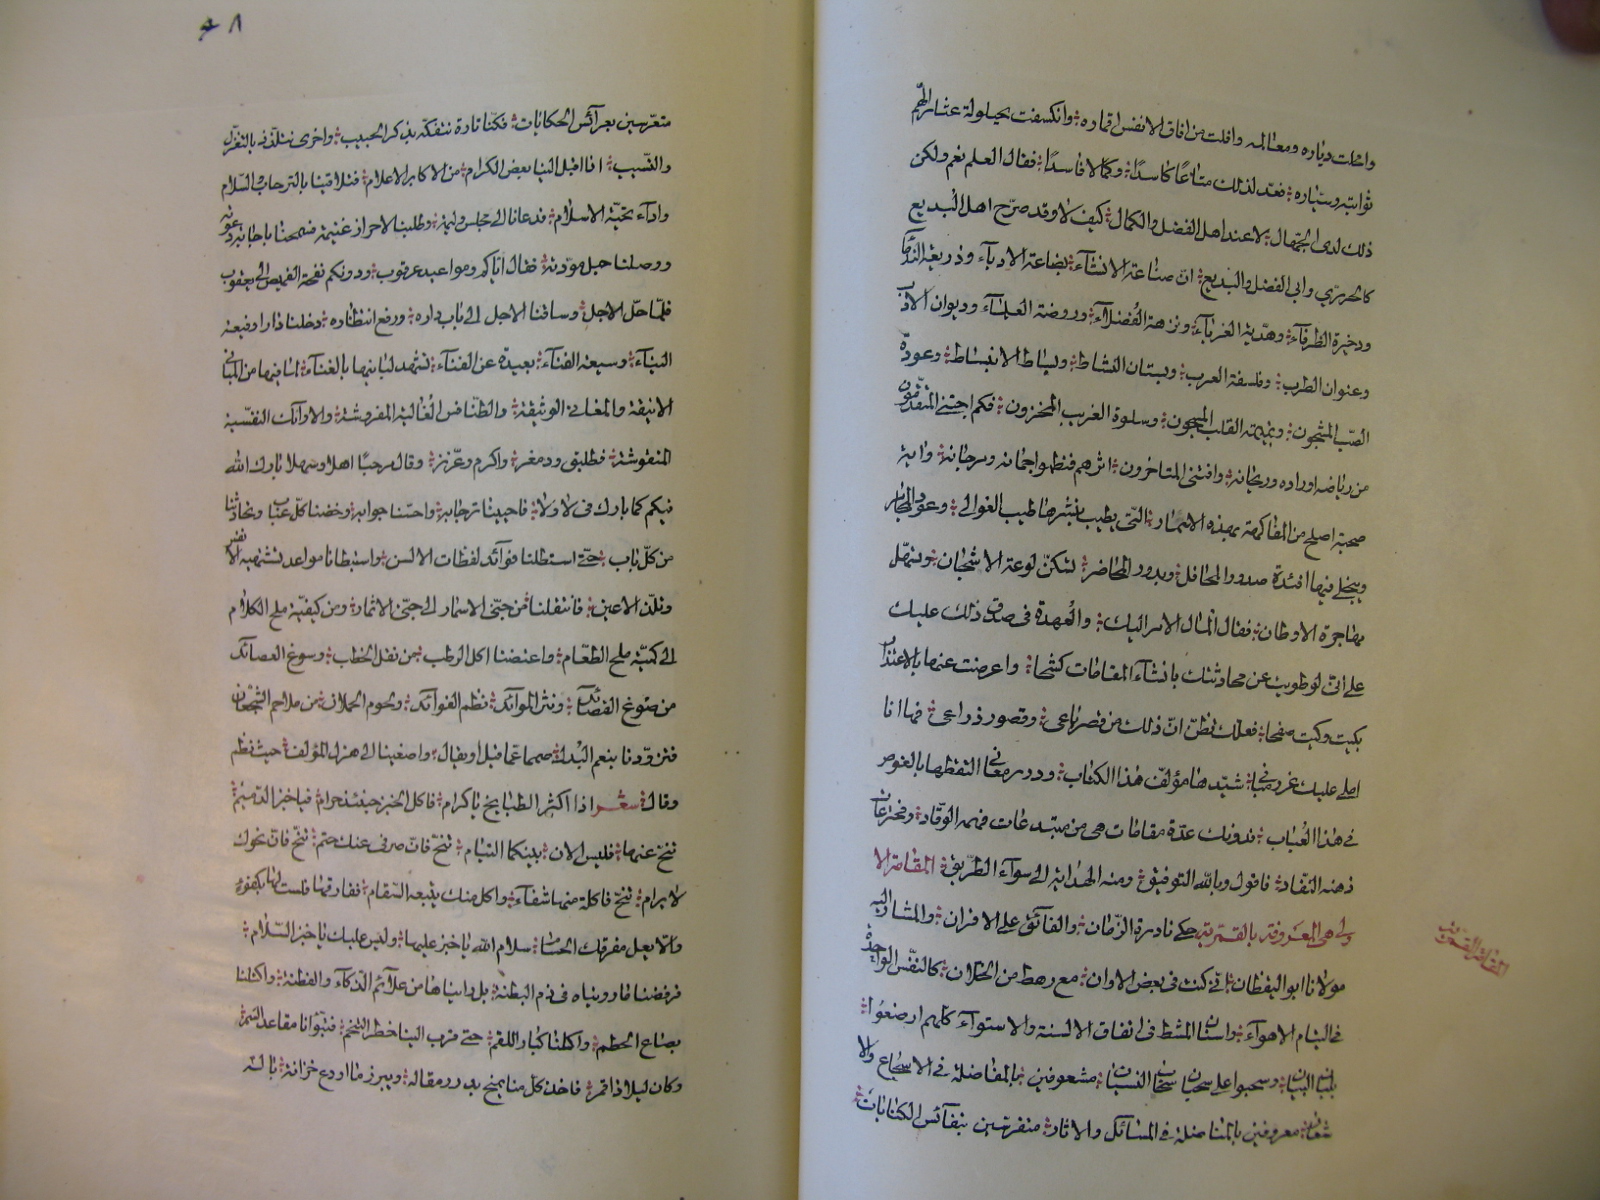 واطلت دياره ومعالمه وافلت من افاق الانفس اقماره وانكسفت بحيلولة عثار الهم
ثوابته وسياره فعد لذلك متاعًا كاسدًا وكمالا فاسدًا فقال العلم نعم ولكن
ذلك لدى الجهال لا عند اهل الفضل والكمال كيف لا وقد صرّح اهل البديع
كالحريري وابي الفضل والبديع ان صناعة الانشآء بضاعة الادبآء وذريعة الندمآ
وذخيرة الظرفآء وهديه الغربآء ونزهة الفُضلآء وروضة العلمآء وديوان الادب
وعنوان الطرب وفلسفة العرب وبستان النشاط وبساط الانبساط وعوذة
الصب المشجون وتميمة القلب وسلوة الغريب المحزون فكم اجتنى المتقدمون
من رياضه اوراده وريحانه واقتفى المتاخرون اثرهم فنظموا جمانه ومرجانه واية
صحبة اصلح من المفاكهة بهذه الاسمار التي يطيب بنشرها طيب الغوالي
وينجلي فيها افئدة صدور المحافل وبدور المحاضر لتسكن لوعة الاشجان وتسهل
مهاجرة الاوطان فقال المال الامر اليك والعُهدة في صدق ذلك عليك
على انّى لو طويت عن محادثتك بانشآء المقامات كشحا واعرضت عنها بالاعتذار
بكيت وكيت صفحا فعلك تظن انّ ذلك من قصر باعي وقصور ذراعي فها انا
املى عليك شيّدها مؤلف هذا الكتاب ودرر معاني التقطها بالغوص
في هذا العُباب فدونك عدّة مقامات هي من مبتدعات فهمه الوقاد ومخترعات
ذهنه النقاد فاقول وبالله التوفيق ومنه الهداية الى سوآء الطريق المقامة الا
ولى هي المعروفة بالقمرية حكى نادرة الزمان والفآئق على الاقران والمشار اليه
مولانا ابو اليقظان انى كنت في بعض الاوان مع رهط من الخلان كالنفس الواحدة
في التيام الاهوآء واسنان المشط في اتفاق الالسنة والاستوآء كلهم ارضعُوا
بلبان البيان وسحبوا على سحبان النسيان مشعوفين بالمفاضلة في الاسجاع والا
معروفين بالمناضلة في المسائل والاثار متفرسين بنفآئس الكتابات
المقامة القمرية
٨
متعرسين بعرآئس الحكايات فكنّا تارة نتفكه بذكر الحبيب واخرى نتلذذ بالتغزل
والنسيب اذا اقبل الينا بعض الكرام من الاكابر الاعلام فتلاقينا بالترحاب والسّلام
وادآء تحيّة الاسلام فدعانا الى جلس وليمة وطلبنا لاحراز غنيمة فسمحنا باجابة دعوته
ووصلنا حبل مودته فقال اياكم ومواعيد عرقوب ودونكم نفحة القميص الى يعقوب
فلمّا حلّ الاجل وساقنا الاجل الى باب داره ورفع انتظاره دخلنا دارا رفيعة
البنآء وسيعة الفنآء بعيدة عن الفنآء تشهد لبانيها بالغنآء لما فيها من المباني
الانيقة والمغاني الوثيقة والطنافس الغالية المفروشة والاوانك النفيسة
المنقوشة فطلبق ودمغر واكرم وعزيز وقال مرحبًا اهلا وسهلا بارك الله
فيكم كما بارك في لا ولا فاجبينا ترحابه واحسنا جوابه وخضنا كل عباب وتحادثنا
من كلّ باب حتى استطلنا فوآئد لفظات الالسن واستبطانا موائد تشتهيه الانفس
وتلذ الاعين فانتقلنا من جنى الاسمار الى جنى الاثمار ومن كيفيّة ملح الكلام
الى كميّة ملح الطعام واعتضنا اكل الرطب من نقل الخطب وسوغ العصآئد
من صوغ القصآئد ونثر الموآئد نظم الفوآئد ولحوم الحملان من ملاحم الشجعان
فتزودنا بنعم البدل صمما عما قيل او يقال واصغينا الى هزل المؤلف حيث نظم
وقال شعر اذا اكثر الطبايخ ياكرام فاكل الخبز حينئذ حرام فيا خبز الذميم
تنح عنها فليس الان بينكما التيام تنح فان صرفى عنك حتم تنح فان نحوك
لا يرام تنح فاكله منها شفاء واكل منك يتبعه السّقام ففارقها فلست لها بكفوء
والّا يعل مفرقك الحسام سلام الله ياخبز عليها وليس عليك ياخبز السّلام
فرفضنا ماروبناه فى ذم البطنة بل راينا من علآئم الذكآء والفطنة واكتلنا
بصاع الحطم واكلنا كبار اللقم حتى قرب الينا خطر التخم فتبؤانا مقاعد السّمر
وكان ليلا ذا قمر فاخذ كل منا يمنح بدرر مقاله ويبرز ما اودع خزانة باله